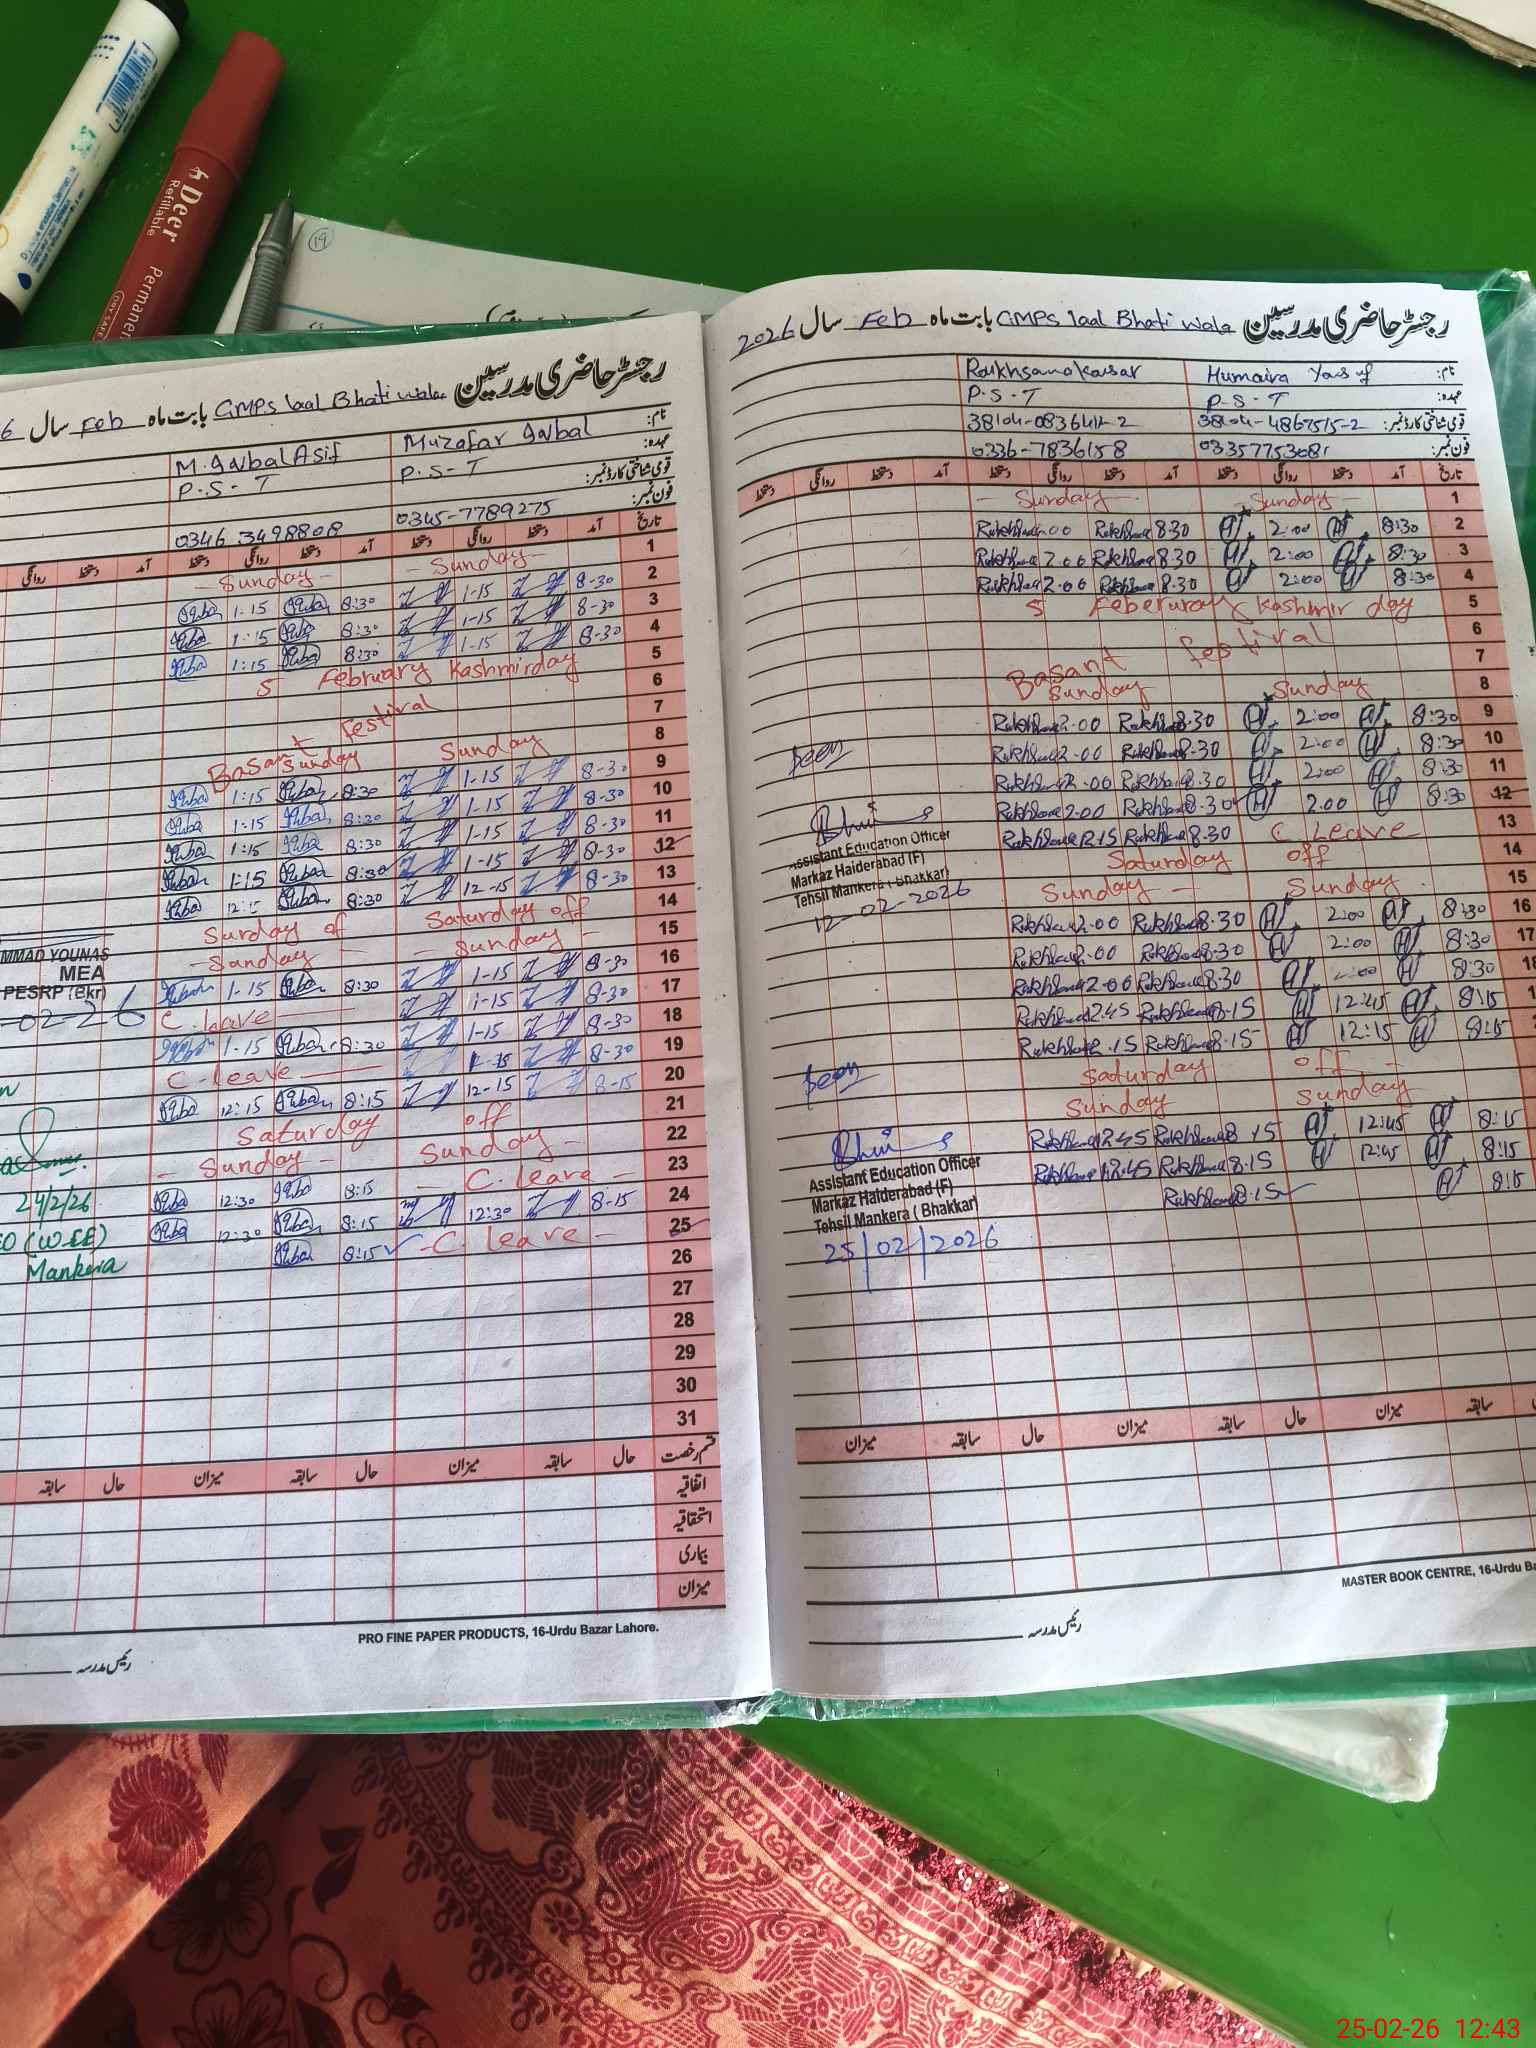 Deer
Refillable
Permanen
DRY SAFE
19
رجسٹر حاضری مدرسین GMPS laal Bhati wala بابت ماہ Feb سال 6
نام: Muzafar Iqbal M. Iqbal Asif
عہدہ: P.S-T P.S-T
قومی شناختی کارڈ نمبر:
فون نمبر: 0345-7789275 0346 3498808
تاریخ آمد دستخط روانگی دستخط آمد دستخط روانگی دستخط آمد دستخط روانگی
1 - Sunday - - Sunday -
2 8-30 1-15 8:30 1:15
3 8-30 1-15 8:30 1:15
4 8-30 1-15 8:30 1:15
5 5 February Kashmir day
6
7 Basant Festival
8 Sunday Sunday
9 8-30 1-15 8:30 1:15
10 8-30 1-15 8:30 1:15
11 8-30 1-15 8:30 1:15
12 8-30 1-15 8:30 1:15
13 8-30 12-15 8:30
14 Saturday off
15 - Sunday - - Sunday -
16 8-30 1-15 8:30 1-15
17 8-30 1-15 C. leave
18 8-30 1-15 8:30 1-15
19 8-30 C. leave
20 8-15 12-15 8:15 12:15
21 Saturday off
22 Sunday - - Sunday -
23 C. leave 8:15 12:30
24 8-15 12:30 8:15 12:30
25 - C. leave - 8:15
26
27
28
29
30
31
MMAD YOUNAS
MEA
PESRP (Bkr)
-02-26
24/2/26
EO (W-EE)
Mankera
قسم رخصت حال سابقہ میزان حال سابقہ میزان حال سابقہ
اتفاقیہ
استحقاقیہ
بیماری
میزان
PRO FINE PAPER PRODUCTS, 16-Urdu Bazar Lahore.
رئیس مدرسہ
رجسٹر حاضری مدرسین GMPS laal Bhati wala بابت ماہ Feb سال 2026
نام: Humaira Yousuf Rukhsana Kausar
عہدہ: P-S-T P-S-T
قومی شناختی کارڈ نمبر: 38104-4867515-2
فون نمبر: 03357753081 0336-7836158
تاریخ آمد دستخط روانگی دستخط آمد دستخط روانگی دستخط آمد دستخط روانگی دستخط
1 - Sunday - - Sunday -
2 8:30 2:00 8.30
3 8:30 2:00 8.30 2.00
4 8:30 2:00 8.30 2.00
5 5 Feberuray Kashmir day
6
7 Basant festival
8 Sunday Sunday
9 8:30 2:00 8.30 2.00
10 8:30 2:00 8.30 2.00
11 8:30 2:00 8.30 2.00
12 8:30 2.00 8.30 2.00
13 C. Leave 8.30
14 Saturday off
15 Sunday - Sunday
16 8:30 2:00 8.30 2.00
17 8:30 2:00 8.30
8:30 8.30 2.00
8:15 12:45 8.15 12.45
8:15 12:15 8.15
Saturday off -
Sunday Sunday
8:15 12:45 8.15 12.45
8:15 12:45 8.15 12.45
8:15 8.15
Seen
Assistant Education Officer
Markaz Haiderabad (F)
Tehsil Mankera (Bhakkar)
12-02-2026
Seen
Assistant Education Officer
Markaz Haiderabad (F)
Tehsil Mankera (Bhakkar)
25/02/2026
سابقہ میزان حال سابقہ میزان حال سابقہ میزان
MASTER BOOK CENTRE, 16-Urdu Ba
رئیس مدرسہ
25-02-26 12:43